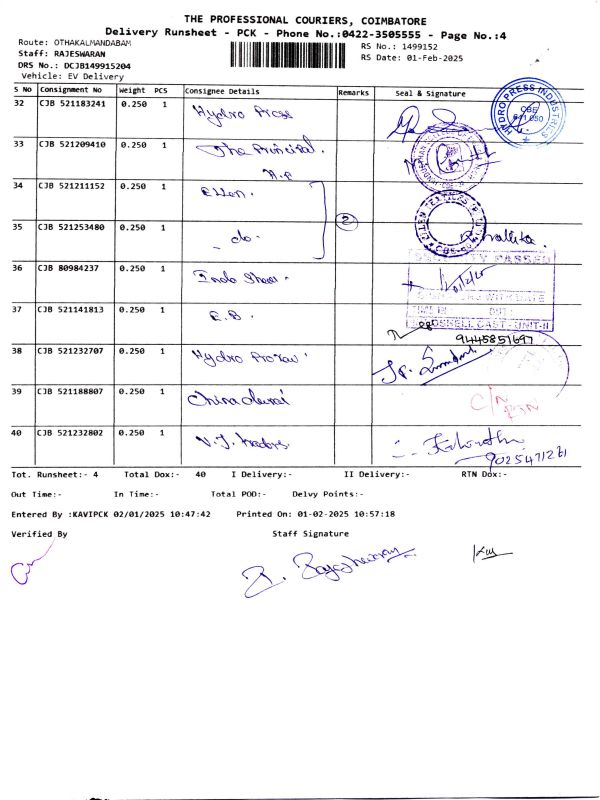 THE PROFESSIONAL COURIERS, COIMBATORE
Delivery Runsheet - PCK - Phone No.:0422-3505555 - Page No.:4
Route: OTHAKALMANDABAM
Staff: RAJESWARAN
DRS No.: DCJB149915204
Vehicle: EV Delivery
RS No.: 1499152
RS Date: 01-Feb-2025
S No Consignment No Weight PCS Consignee Details Remarks Seal & Signature
32 CJB 521183241 0.250 1 Hydro Press
HYDRO PRESS INDUSTRIES
CBE
33 CJB 521209410 0.250 1 The Principal.
34 CJB 521211152 0.250 1 Ellen.
35 CJB 521253480 0.250 1 - do - 2
36 CJB 80984237 0.250 1 Indo Shell
SECURITY PASSED
37 CJB 521141813 0.250 1 E.B.
INDOSHELL CAST UNIT-II
9445851697
38 CJB 521232707 0.250 1 Hydro
39 CJB 521188807 0.250 1 Chinadurai
C/N
40 CJB 521232802 0.250 1 V.J. Traders
9025471261
Tot. Runsheet:- 4 Total Dox:- 40 I Delivery:- II Delivery:- RTN Dox:-
Out Time:- In Time:- Total POD:- Delvy Points:-
Entered By :KAVIPCK 02/01/2025 10:47:42 Printed On: 01-02-2025 10:57:18
Verified By Staff Signature